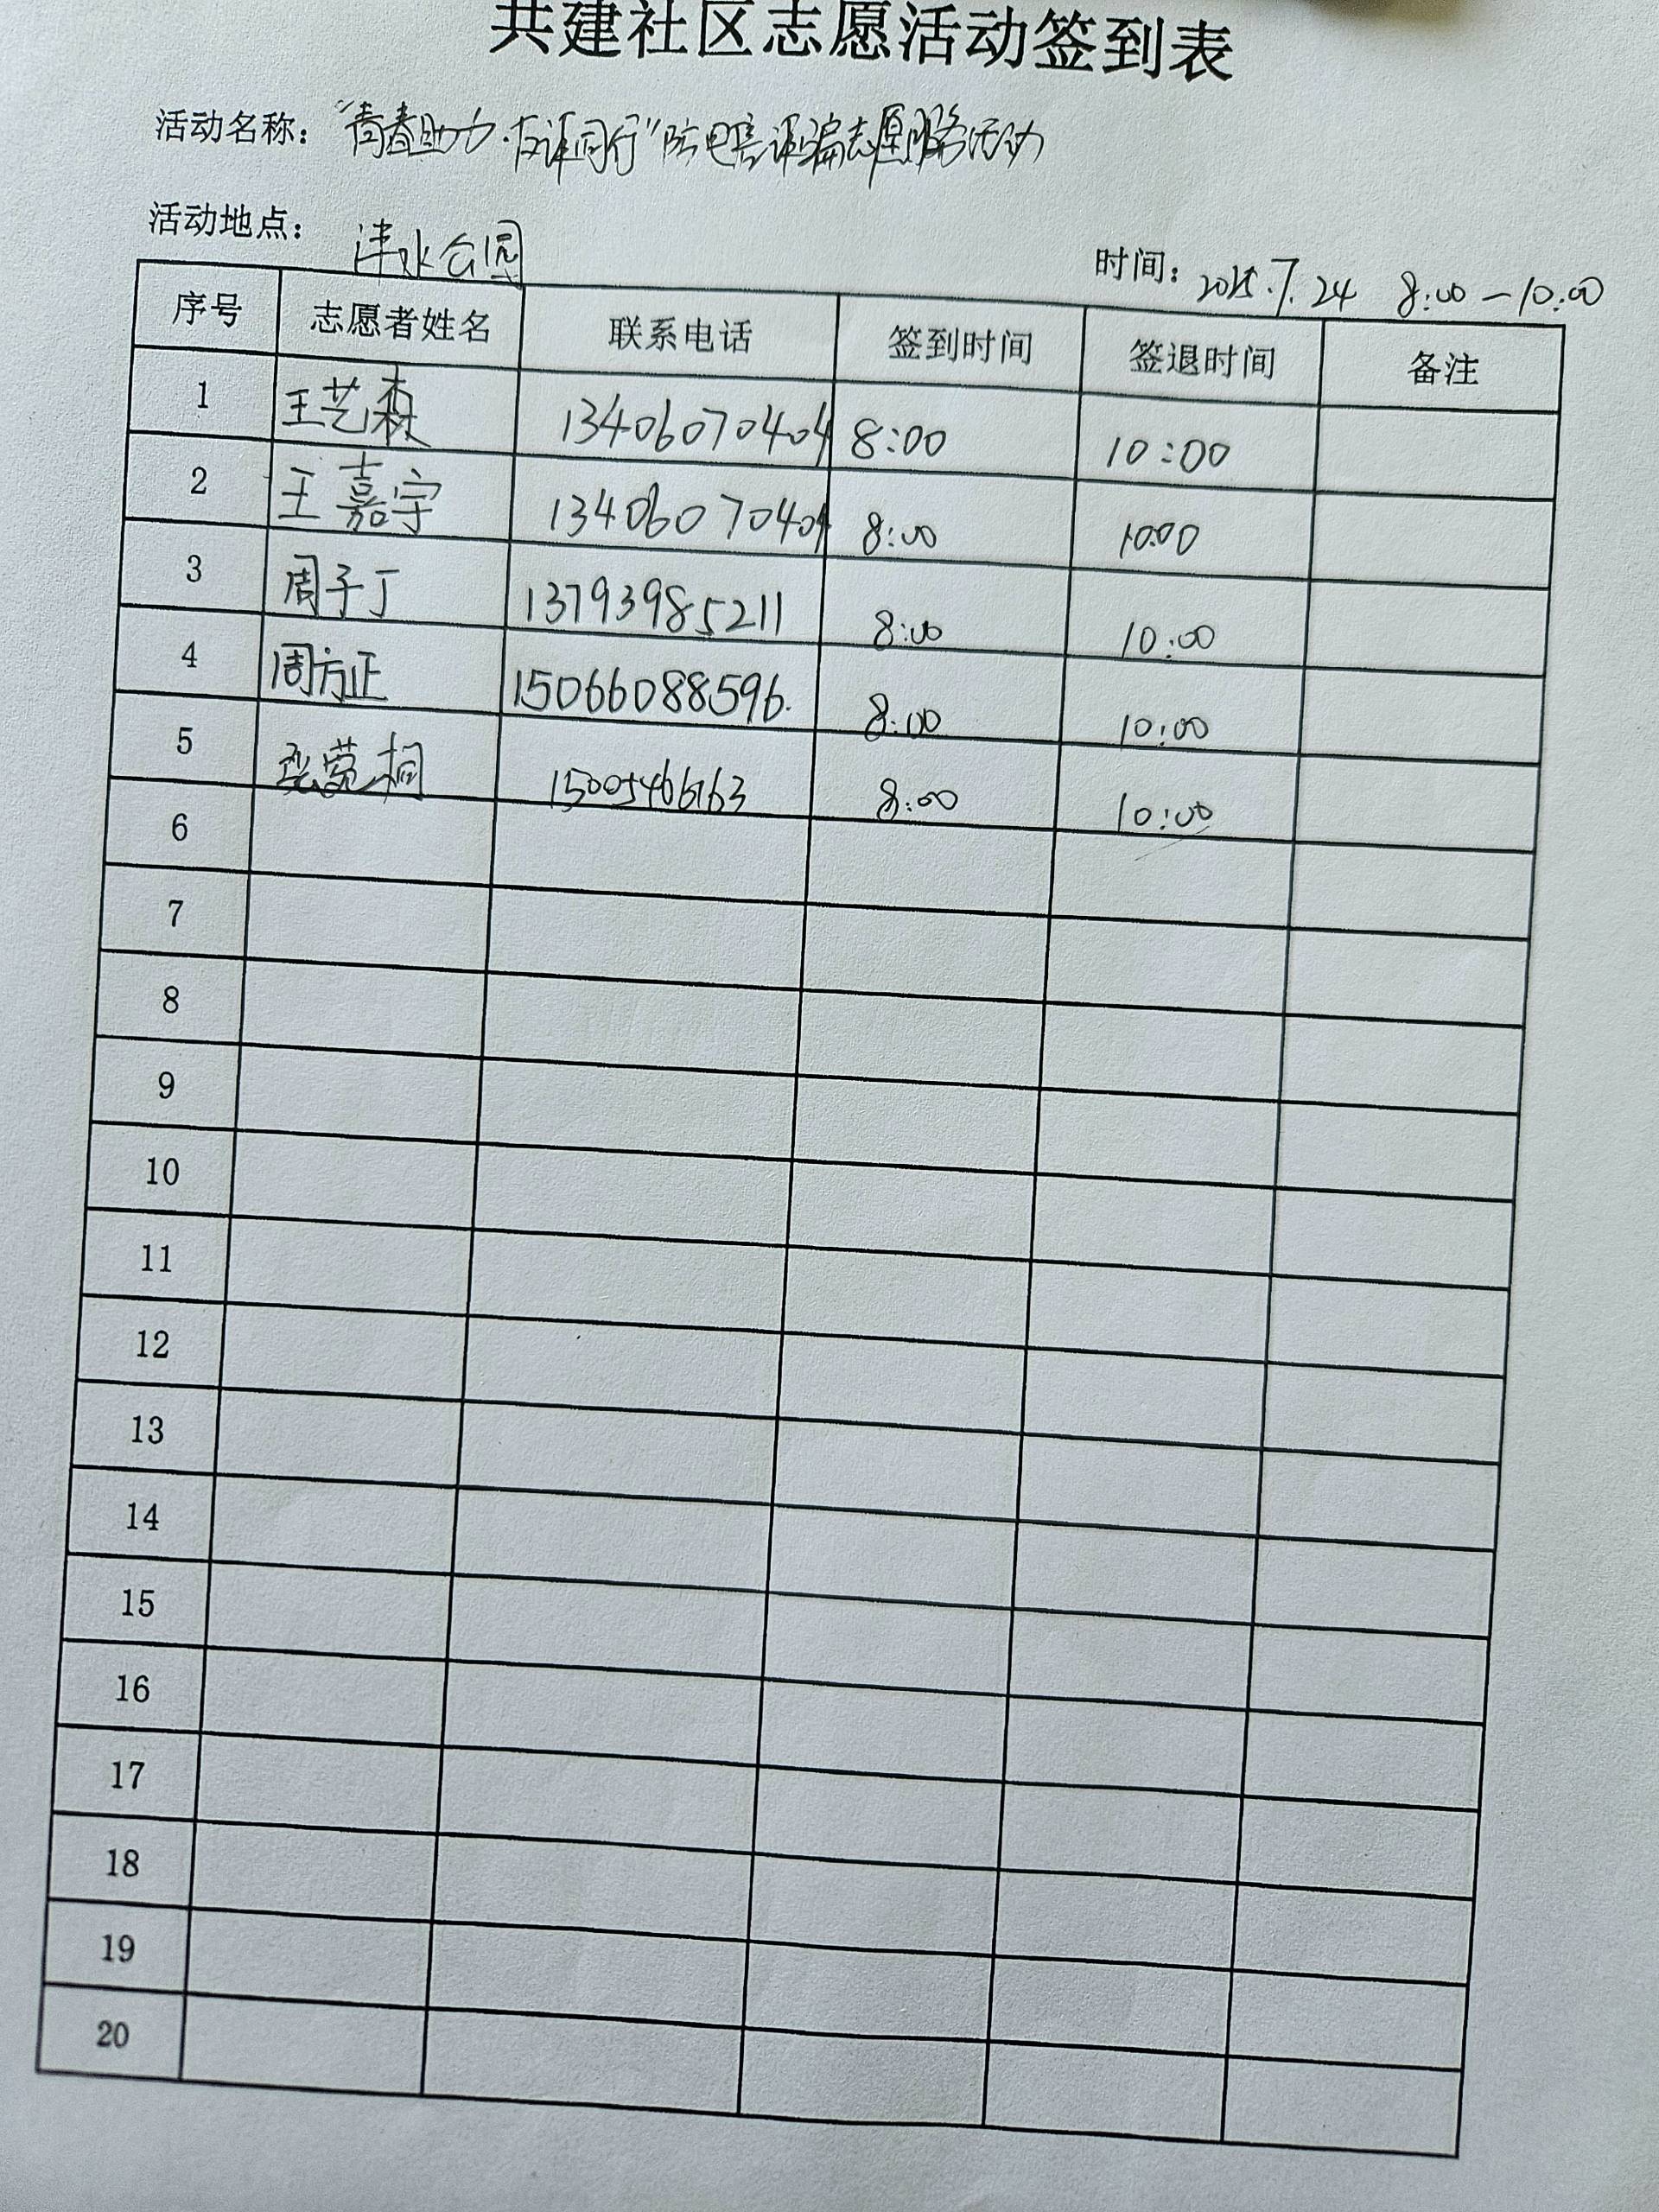 共建社区志愿活动签到表
活动名称：“青春助力·反诈同行”防电信诈骗志愿服务活动
活动地点： 津水公园
时间：2025.7.24 8:00—10:00
序号 志愿者姓名 联系电话 签到时间 签退时间 备注
1 王艺森 13406070404 8:00 10:00
2 王嘉宇 13406070404 8:00 10:00
3 周子丁 13793985211 8:00 10:00
4 周方正 15066088596. 8:00 10:00
5 8:00 10:00
6
7
8
9
10
11
12
13
14
15
16
17
18
19
20